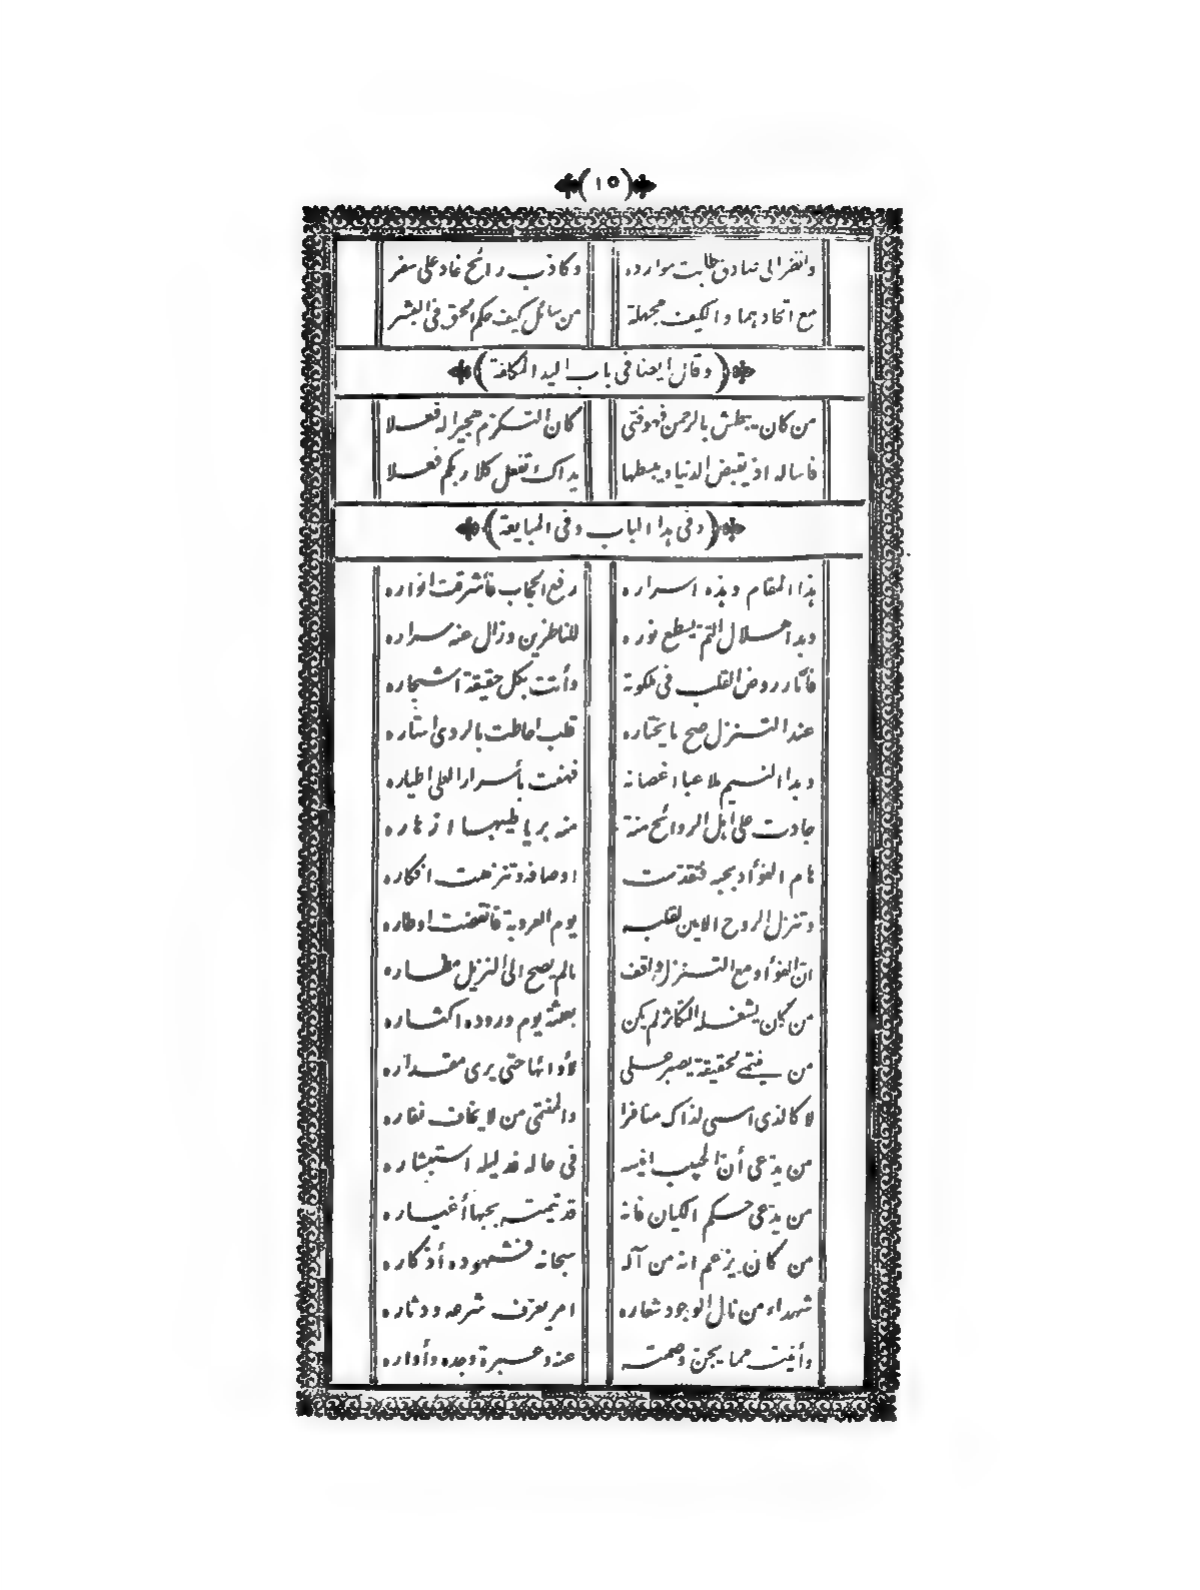 (١٥)
وانظر الى صادق طابت موارده وكاذب رائح غاد على سفر
مع اتحادهما والكيف مجهلة من سائل كيف حكم الحق في البشر
(وقال أيضا في باب اليد المكافة)
من كان يبطش بالرحمن فهو فتى كان التكرم هجيرا له فعلا
فاساله اذ يقبض الدنيا ويبسطها يداك تفعل كلا ربكم فعلا
(وفي هذا الباب وفي المبايعة)
هذا المقام وهذه اسراره رفع الحجاب فأشرقت انواره
وبدا هلال التم يسطع نوره للناظرين وزال عنه سراره
فأنار روض القلب في ملكوته وأتت بكل حقيقة اشجاره
عند التنزل صح ما يختاره قلب احاطت بالردى استاره
وبدا النسيم ملاعبا اغصانه فهفت بأسرار العلى اطياره
جادت على اهل الروائح منة منه بريا طيبها ازهاره
هام الفؤاد بحبه فتقدست اوصافه وتنزهت افكاره
وتنزل الروح الامين لقلبه يوم العروبة فانقضت اوطاره
ان الفؤاد مع التنزل واقف مالم يصح الى النزيل مطاره
من كان يشغله التكاثر لم يكن بعثته يوم وروده اكثاره
من ينتمى لحقيقة يصبر على لأوائها حتى يرى مقداره
لا كالذي امسى لذاك منافرا والمنتمى من لا يخاف نفاره
من يدعى أن الحبيب انيسه في حاله فدليله استبشاره
من يدعى حكم الكيان فانه قد تيمته بحبها أغياره
من كان يزعم انه من آله سبحانه فشهوده أذكاره
شهداء من نال الوجود شعاره امر يعرف شرعه ودثاره
وأنينه مما يجن وصمته عنه وعبرة وجده وأواره